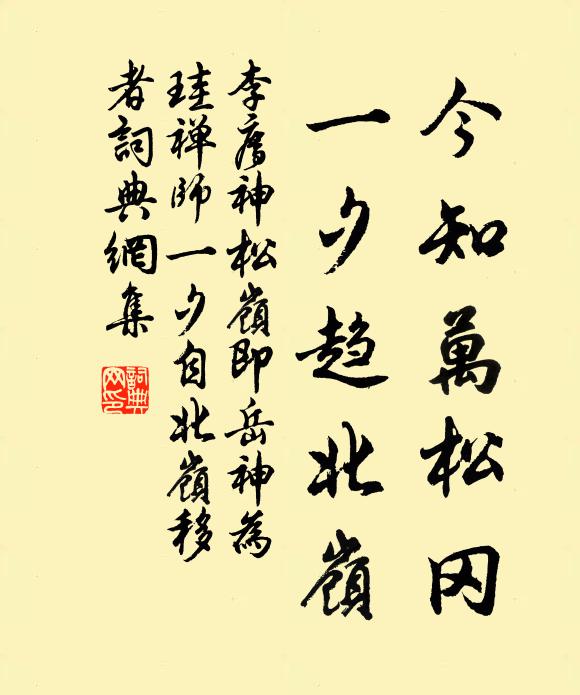 今知萬松冈
一夕趋北嶺
李廌神松嶺即岳神為
珪禅師一夕自北嶺移
者詞典網集
詞典网印